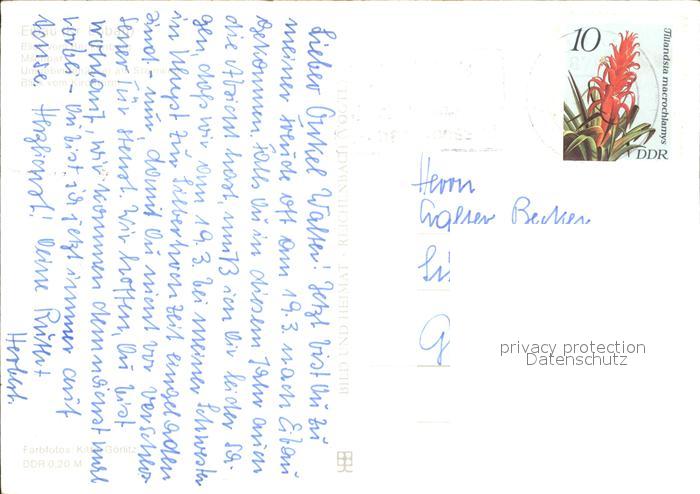 Lieber Onkel Walter! Jetzt bist Du zu
meiner Freude oft am 19. 3. nach Eibau
gekommen. Falls Du in diesem Jahr auch
die Absicht hast, muß ich Dir leider sa-
gen, daß wir am 19. 3. bei meiner Schwester
in zur Silberhochzeit eingeladen
sind. Nur, damit Du nicht vor verschlos-
sener Tür stehst. Wir hoffen, Du bist
wohlauf, wir kommen demnächst mal
vorbei – Du bist ja jetzt immer auf
Herzlichst! Deine Ruth +
Herbert.
10
Tillandsia macrochlamys
DDR
Herrn
Walter Becker
G
privacy protection
Datenschutz
BILD UND HEIMAT · REICHENBACH (VOGTL)
Farbfotos: Görlitz
DDR 0,20 M